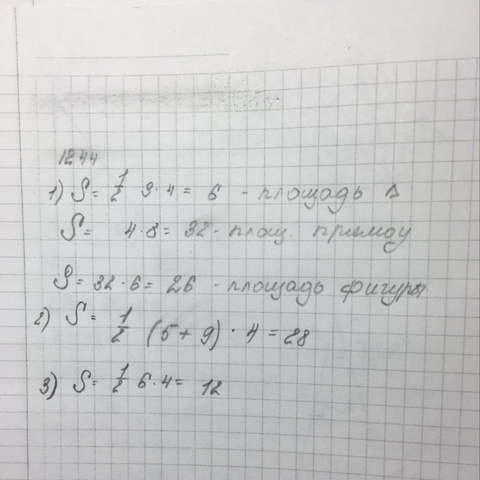 1244
1) S = 1/2 3 · 4 = 6 - площадь Δ
S = 4 · 8 = 32 - площ. прямоу
S = 32 - 6 = 26 - площадь фигуры
2) S = 1/2 (5 + 9) · 4 = 28
3) S = 1/2 6 · 4 = 12